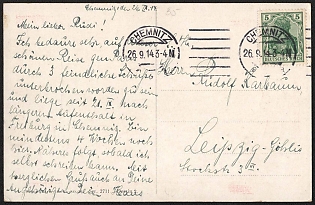 Chemnitz, den 26. IX. 14
Mein lieber Rudi!
Ich bedaure sehr auf
schönen Reise
durch 3 feindliche
unterbrochen worden zu sein
und liege seit 21. IX. nach
längerem Aufenthalt in
Freiburg in Chemnitz. Bin
mindestens 4 Wochen noch
hier. Näheres folgt, sobald ich
selbst schreiben kann. Mit
herzlichen Gruß auch an Deine
Angehörigen Dein
2711
CHEMNITZ
26.9.14.3-4N
CHEMNITZ
26.9.14.3-4N
5 5
DEUTSCHES
Herrn
Rudolf
Leipzig-Gohlis